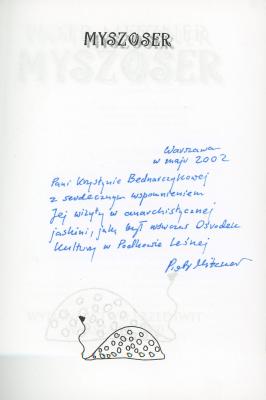 MYSZOSER
Warszawa
w maju 2002
Pani Krystynie Bednarczykowej
z serdecznym wspomnieniem
Jej wizyty w anarchistycznej
jaskini, jaką był wówczas Ośrodek
Kultury w Podkowie Leśnej
Piotr Mitzner